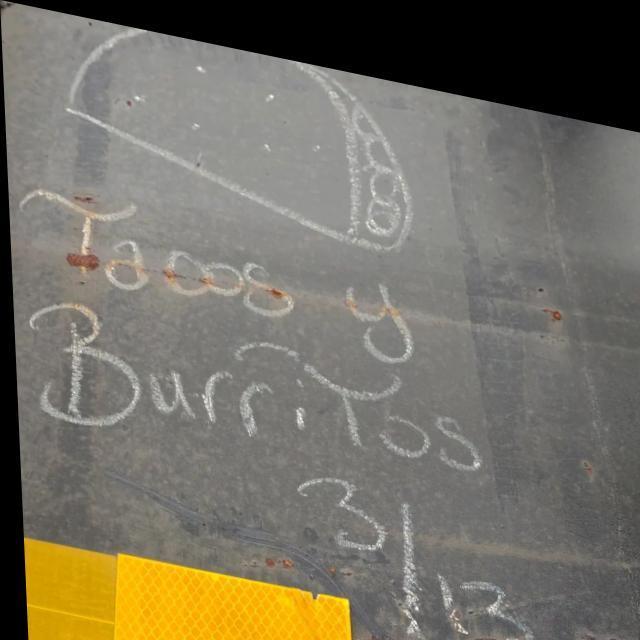 Tacos y
Burritos
3/13